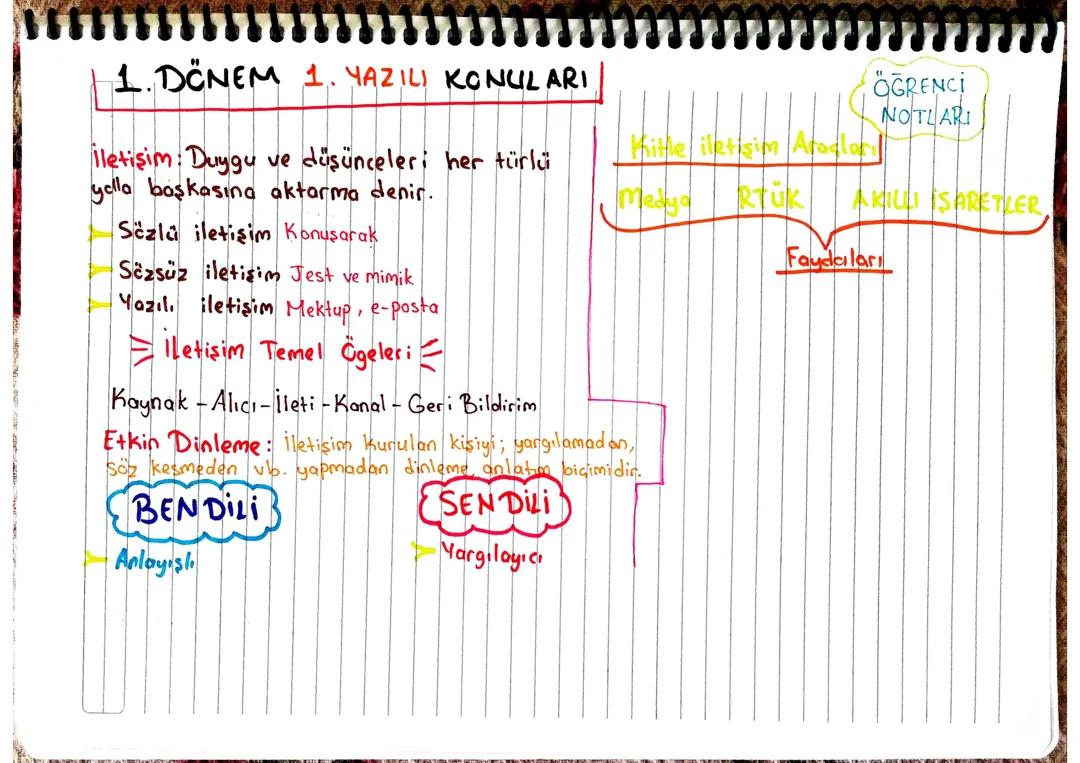 1. DÖNEM 1. YAZILI KONULARI
İletişim: Duygu ve düşünceleri her türlü
yolla başkasına aktarma denir.
Sözlü iletişim Konuşarak
Sözsüz iletişim Jest ve mimik
Yazılı iletişim Mektup, e-posta
İletişim Temel Ögeleri
Kaynak - Alıcı - İleti - Kanal - Geri Bildirim
Etkin Dinleme: İletişim kurulan kişiyi; yargılamadan,
söz kesmeden vb. yapmadan dinleme, anlatım biçimidir.
BEN DİLİ
SEN DİLİ
Anlayışlı
Yargılayıcı
ÖĞRENCİ
NOTLARI
Kitle iletişim Araçları
Medya RTÜK AKILLI İŞARETLER
Faydaları